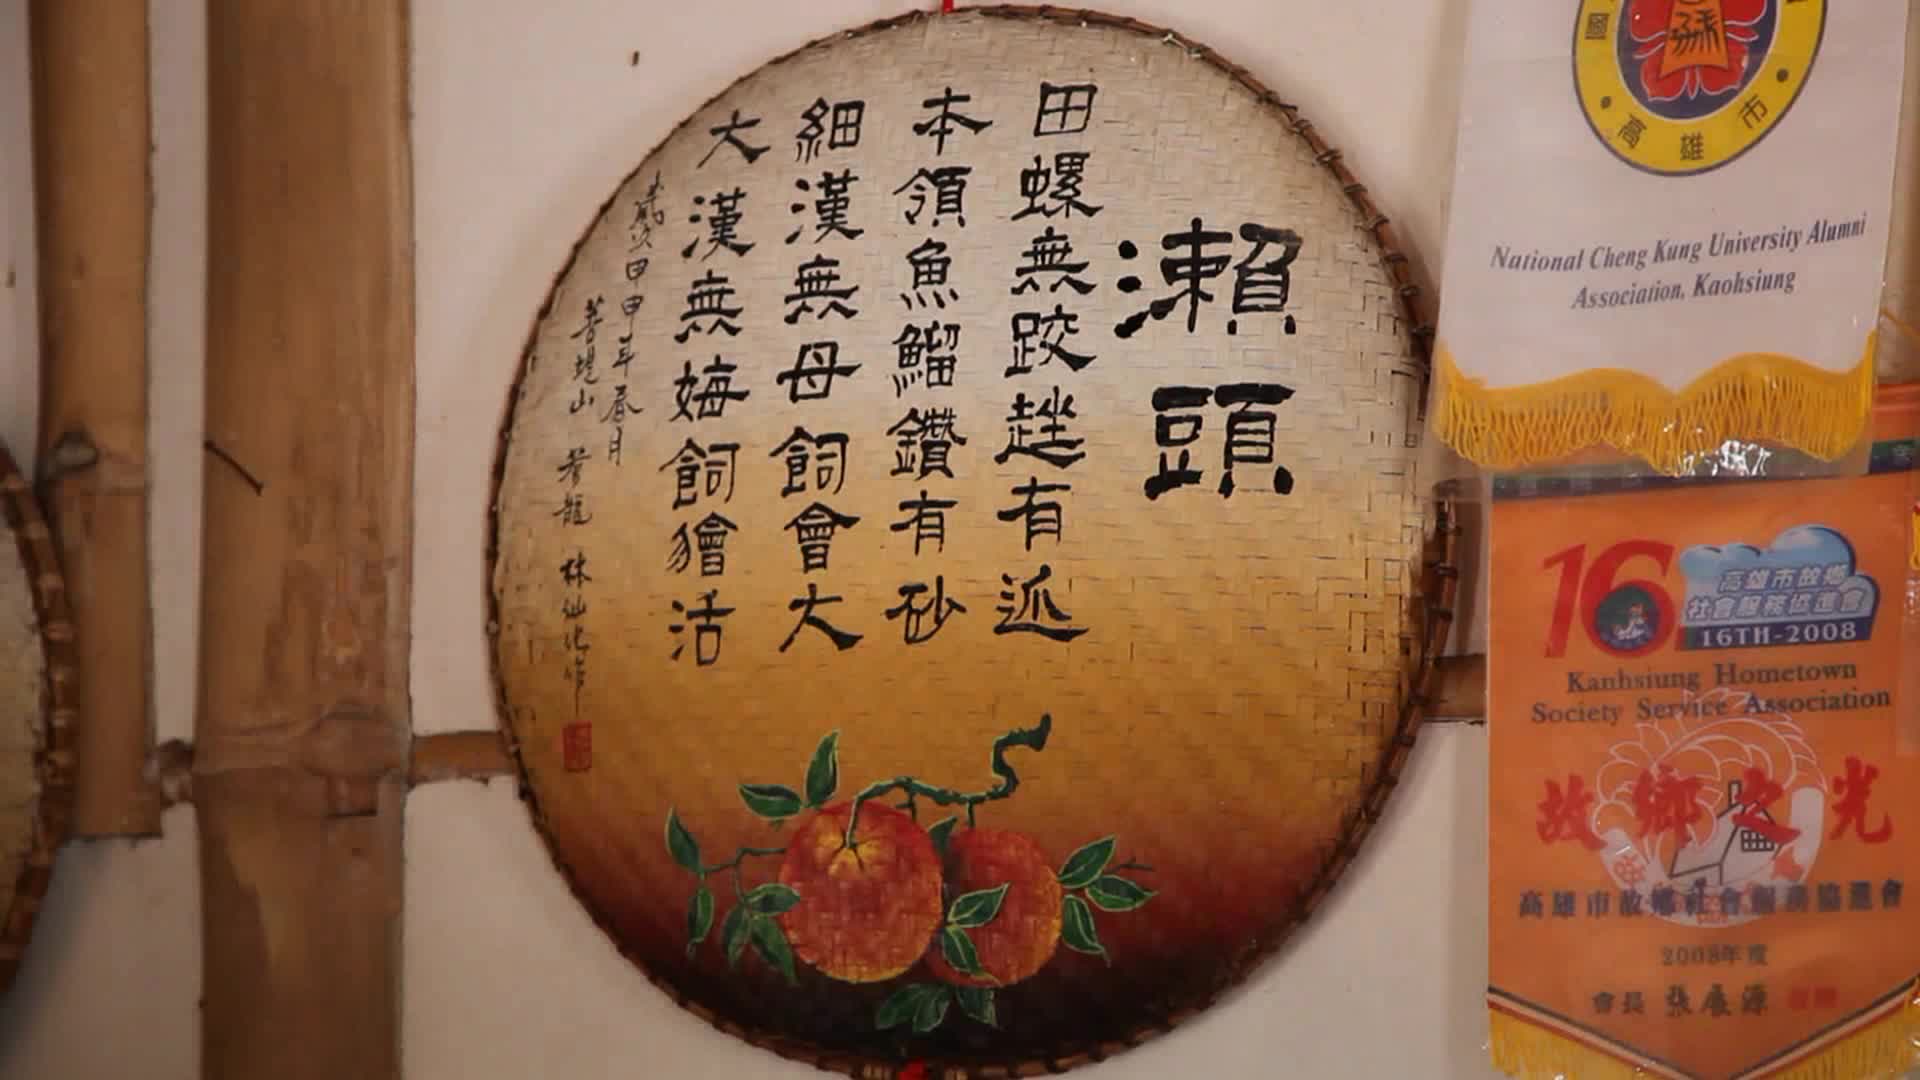 瀨頭
田螺無跤趖有迡
本領魚鰡鑽有砂
細漢無母飼會大
大漢無㛛飼獪活
歲次甲申年春月
菩堤山 若龍 林仙化作
國
高雄市
National Cheng Kung University Alumni
Association, Kaohsiung
16
高雄市故鄉
社會服務促進會
16TH-2008
Kanhsiung Hometown
Society Service Association
故鄉之光
高雄市故鄉社會服務協進會
2008年度
會長 張展源